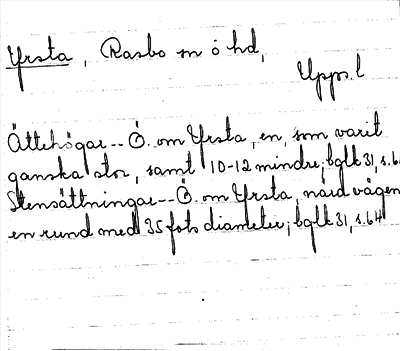 Yrsta, Rasbo sn o hd,
Upps. l
Ättehögar -- Ö. om Yrsta, en, som varit
ganska stor, samt 10-12 mindre; bglk 31, s. 6
Stensättningar -- Ö. om Yrsta, närd vägen
en rund med 35 fots diameter; bglk 31, s. 64